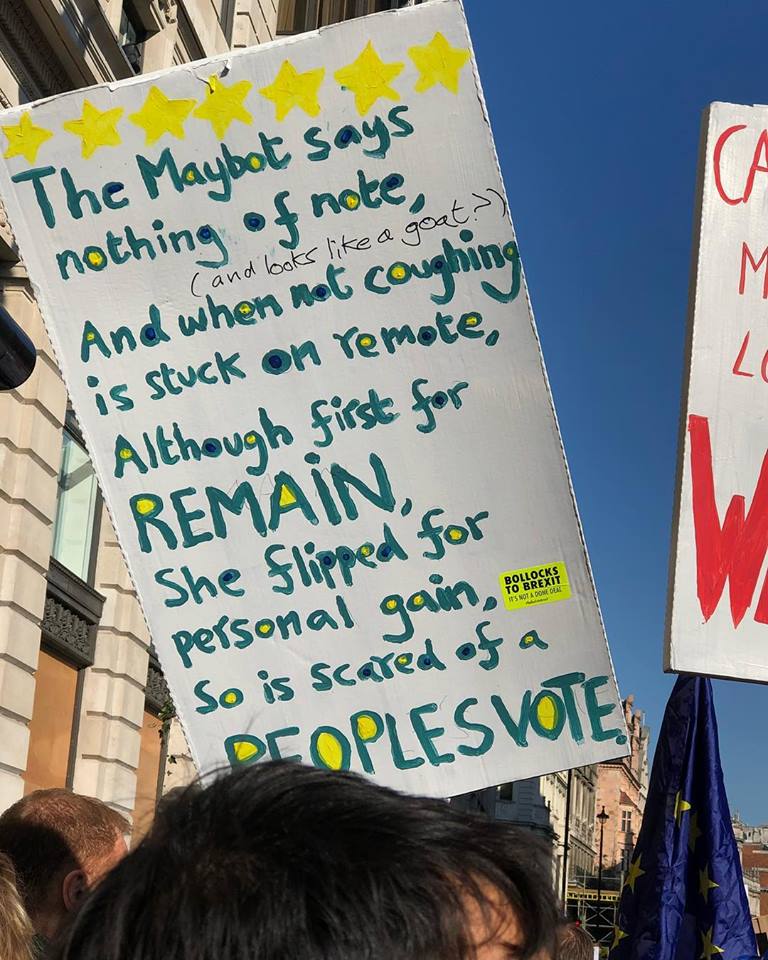 The Maybot says
nothing of note,
(and looks like a goat?)
And when not coughing
is stuck on remote,
Although first for
REMAIN,
She flipped for
personal gain,
So is scared of a
PEOPLES VOTE.
BOLLOCKS
TO BREXIT
IT'S NOT A DONE DEAL
CA
M
LO
WA